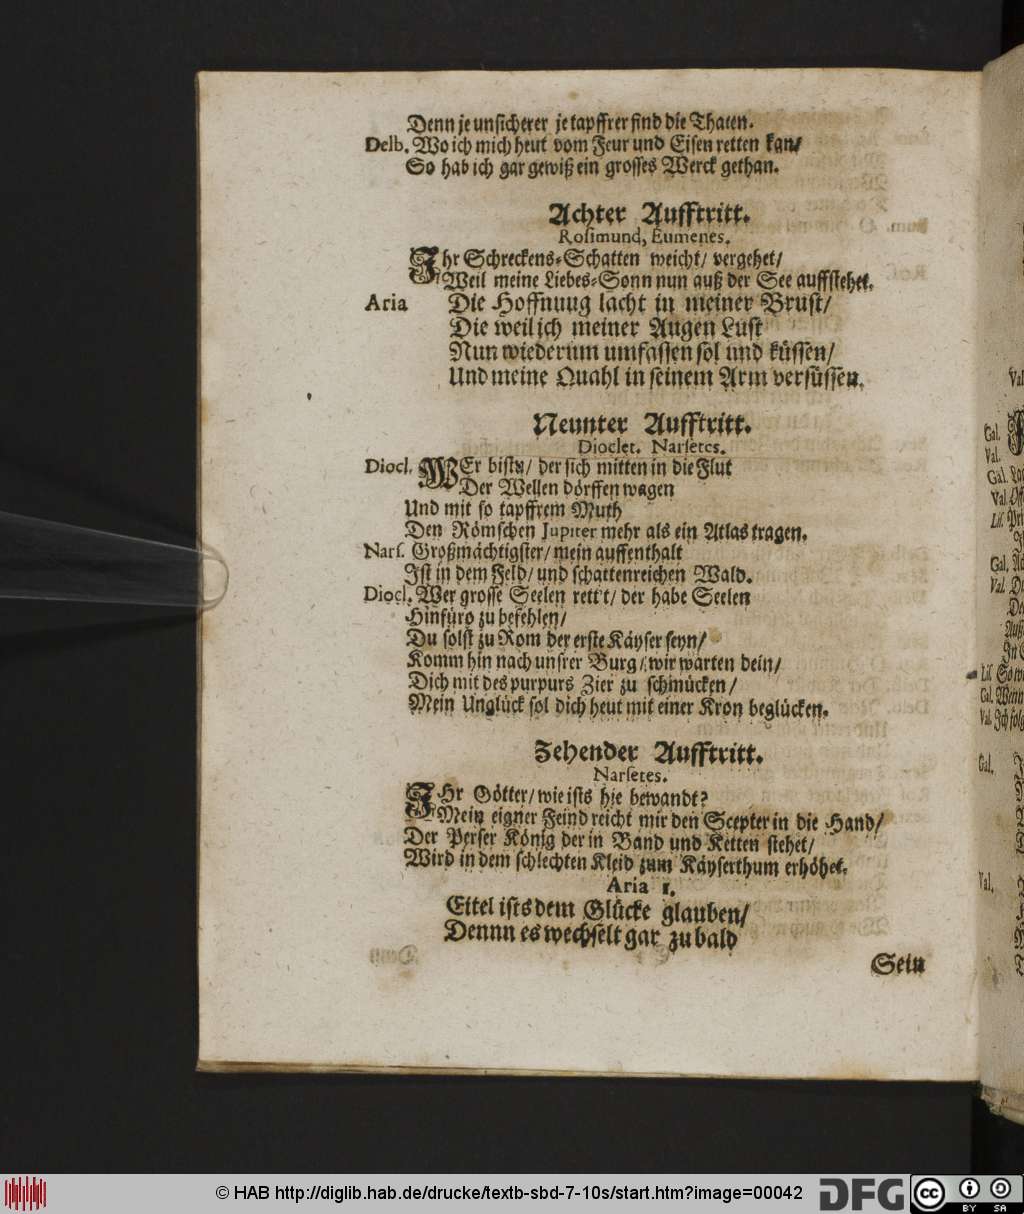 Denn je unsicherer je tapffrer sind die Thaten.
Delb. Wo ich mich heut vom Feur und Eisen retten kan/
So hab ich gar gewiß ein grosses Werck gethan.
Achter Aufftritt.
Rosimund, Eumenes.
Ihr Schreckens-Schatten weicht/ vergehet/
Weil meine Liebes-Sonn nun auß der See auffstehet.
Aria Die Hoffnuug lacht in meiner Brust/
Die weil ich meiner Augen Lust
Nun wiederum umfassen sol und küssen/
Und meine Quahl in seinem Arm versüssen.
Neunter Aufftritt.
Dioclet. Narsetes.
Diocl. WEr bistu/ der sich mitten in die Flut
Der Wellen dörffen wagen
Und mit so tapffrem Muth
Den Römschen Jupiter mehr als ein Atlas tragen.
Nars. Großmächtigster/ mein auffenthalt
Ist in dem Feld/ und schattenreichen Wald.
Diocl. Wer grosse Seelen rett't/ der habe Seelen
Hinfüro zu befehlen/
Du solst zu Rom der erste Käyser seyn/
Komm hin nach unsrer Burg/ wir warten dein/
Dich mit des purpurs Zier zu schmücken/
Mein Unglück sol dich heut mit einer Kron beglücken.
Zehender Aufftritt.
Narsetes.
IHr Götter/ wie ists hie bewandt?
Mein eigner Feind reicht mir den Scepter in die Hand/
Der Perser König der in Band und Ketten stehet/
Wird in dem schlechten Kleid zum Käyserthum erhöhet.
Aria 1.
Eitel ists dem Glücke glauben/
Dennn es wechselt gar zu bald
Sein
Val
Gal.
Val.
Gal.
Val.
Lis.
Gal.
Val.
Lis. So
Gal. Wann
Val. Ich folg
Gal.
Val.
© HAB http://diglib.hab.de/drucke/textb-sbd-7-10s/start.htm?image=00042
DFG
cc BY SA